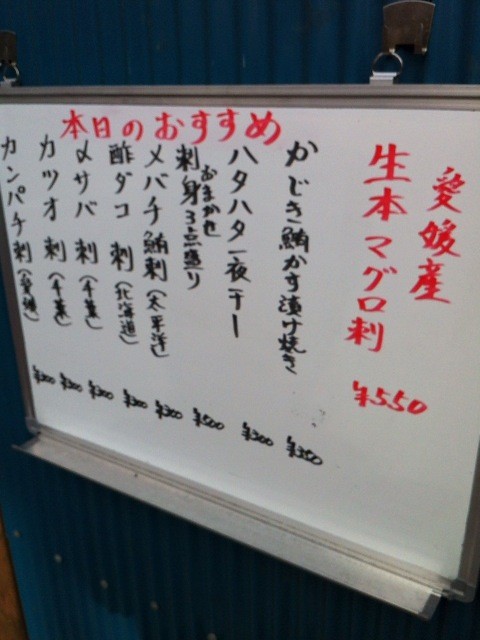 本日のおすすめ
愛媛産
生本マグロ刺
¥550
かじき鮪かす漬け焼き
¥350
ハタハタ一夜干し
¥300
おまかせ
刺身3点盛り
¥500
メバチ鮪刺(太平洋)
¥300
酢ダコ刺(北海道)
¥300
〆サバ刺(千葉)
¥300
カツオ刺(千葉)
¥300
カンパチ刺(愛媛)
¥300